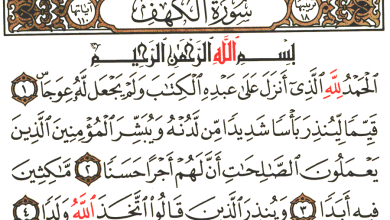 ترتيبها ١٨ سُورَةُ الكَهْفِ آياتها
بِسْمِ ٱللَّهِ ٱلرَّحْمَٰنِ ٱلرَّحِيمِ
ٱلْحَمْدُ لِلَّهِ ٱلَّذِىٓ أَنزَلَ عَلَىٰ عَبْدِهِ ٱلْكِتَٰبَ وَلَمْ يَجْعَل لَّهُۥ عِوَجَاۜ ١
قَيِّمًا لِّيُنذِرَ بَأْسًا شَدِيدًا مِّن لَّدُنْهُ وَيُبَشِّرَ ٱلْمُؤْمِنِينَ ٱلَّذِينَ
يَعْمَلُونَ ٱلصَّٰلِحَٰتِ أَنَّ لَهُمْ أَجْرًا حَسَنًا ٢ مَّٰكِثِينَ
فِيهِ أَبَدًا ٣ وَيُنذِرَ ٱلَّذِينَ قَالُوا۟ ٱتَّخَذَ ٱللَّهُ وَلَدًا ٤